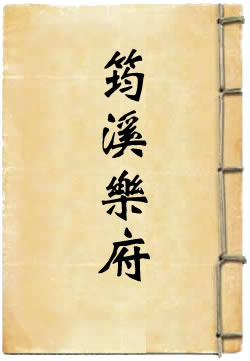 筠溪樂府